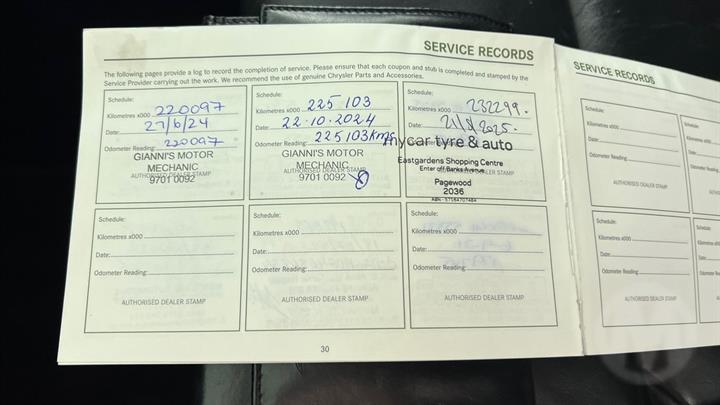 SERVICE RECORDS
The following pages provide a log to record the completion of service. Please ensure that each coupon and stub is completed and stamped by the
Service Provider carrying out the work. We recommend the use of genuine Chrysler Parts and Accessories.
Schedule:
Kilometres x000 220097
Date: 27/6/24
Odometer Reading: 220097
GIANNI'S MOTOR
MECHANIC
AUTHORISED DEALER STAMP
9701 0092
Schedule:
Kilometres x000 225 103
Date: 22.10.2024
Odometer Reading: 225103kms
GIANNI'S MOTOR
MECHANIC
AUTHORISED DEALER STAMP
9701 0092
Schedule:
Kilometres x000 232299.
Date: 21/8/2025.
mycar tyre & auto
Eastgardens Shopping Centre
Enter off Banks Avenue
DEALER STAMP
Pagewood
2036
ABN - 57164707484
Schedule:
Kilometres x000
Date:
Odometer Reading:
AUTHORISED DEALER STAMP
Schedule:
Kilometres x000
Date:
Odometer Reading:
AUTHORISED DEALER STAMP
Schedule:
Kilometres x000
Date:
Odometer Reading:
AUTHORISED DEALER STAMP
30
SERVICE RECORDS
Schedule:
Kilometres x000
Date:
Odometer Reading
AUTHORISED DEALER STAMP
Schedule:
Kilometres x000
Date:
Odometer Reading
AUTHORISED DEALER STAMP